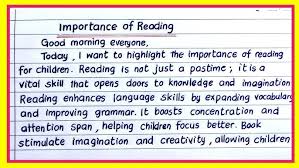 Importance of Reading
Good morning everyone,
Today, I want to highlight the importance of reading
for children. Reading is not just a pastime; it is a
vital skill that opens doors to knowledge and imagination
Reading enhances language skills by expanding vocabulary
and improving grammar. It boosts concentration and
attention span, helping children focus better. Book
stimulate imagination and creativity, allowing children